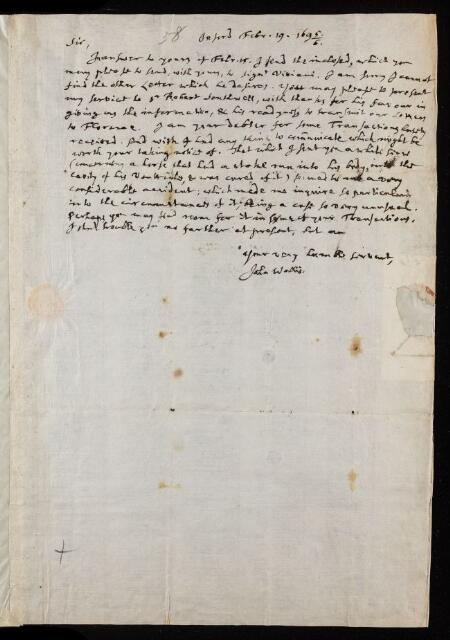 58
Oxford Febr. 19. 1695/6.
Sir,
In answer to yours of Febr. 15. I send the inclosed, which you
may please to send, with yours, to Signr Viviani. I am sorry I cannot
find the other Letter which he desires. You may please to present
my service to Sr Robert Southwell, with thanks for his favour in
giving us the information, & his readyness to transmit our
to Florence. I am your debter for some Transactions lately
received. And wish I had any thing to communicate which might be
worth your taking notice of. That which I sent you a while since
(concerning a horse that had a stake run into his body, into the
cavity of his & was cured of it) seemed to me a very
considerable accident; which made me inquire so particularly
into the circumstances of it: being a case so very unusual.
Perhaps you may find room for it in some of your Transactions.
I shal trouble you no farther at present, but am
Your very humble servant,
John Wallis.